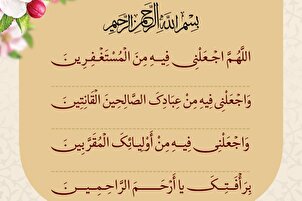 بِسْمِ اللَّهِ الرَّحْمٰنِ الرَّحِيمِ
اللَّهُمَّ اجْعَلْنِي فِيهِ مِنَ الْمُسْتَغْفِرِينَ
وَاجْعَلْنِي فِيهِ مِنْ عِبَادِكَ الصَّالِحِينَ الْقَانِتِينَ
وَاجْعَلْنِي فِيهِ مِنْ أَوْلِيَائِكَ الْمُقَرَّبِينَ
بِرَأْفَتِكَ يَا أَرْحَمَ الرَّاحِمِينَ